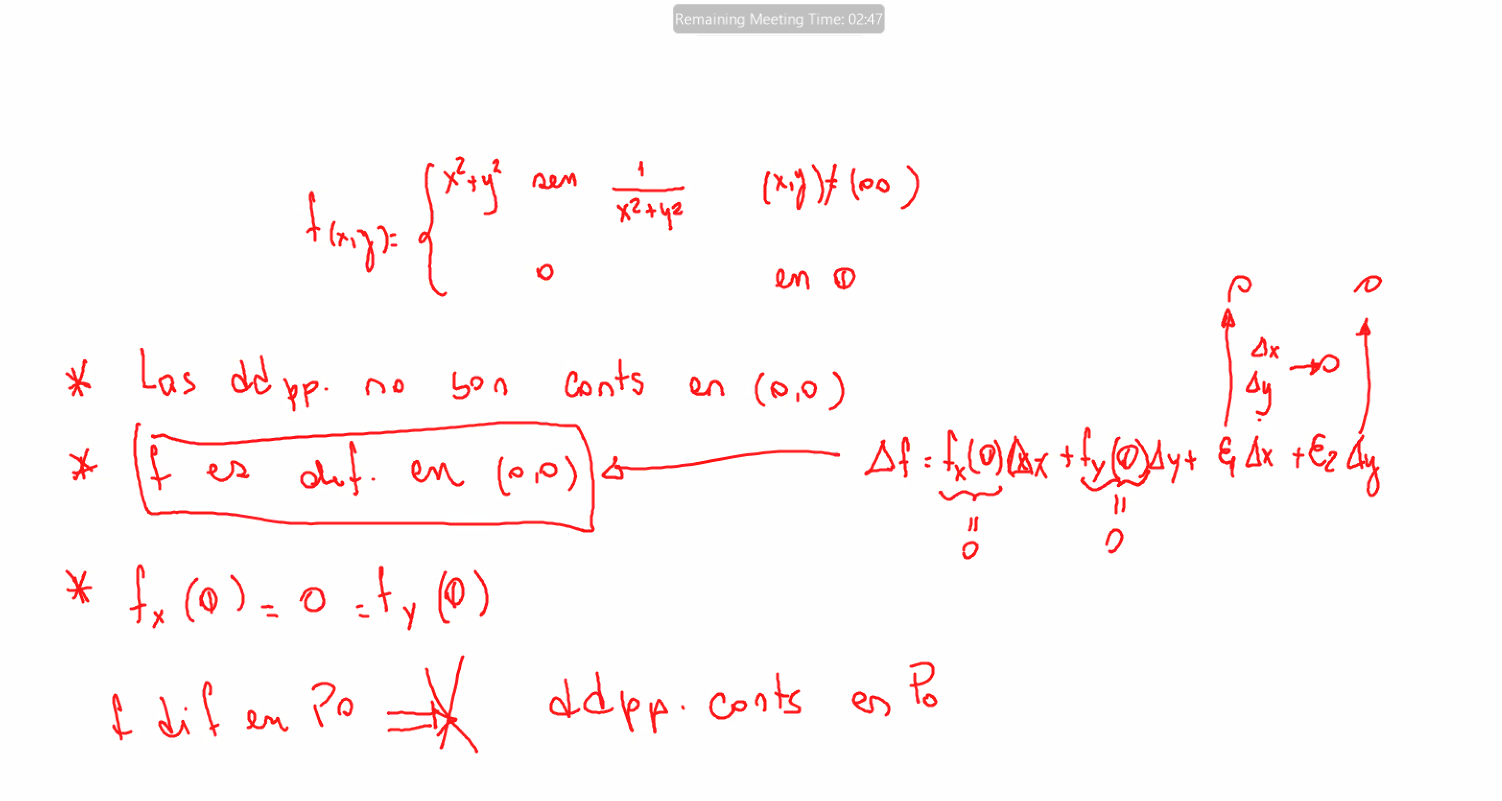 Remaining Meeting Time: 02:47
f(x,y)= { x²+y² sen 1/(x²+y²) (x,y)≠(00)
0 en 𝟘
0 0
Δx
Δy →0
* Las ddpp. no son conts en (0,0)
* f es dif. en (0,0) ← Δf = fx(𝟘)Δx + fy(𝟘)Δy + ε₁Δx + ε₂Δy
= =
0 0
* fx(𝟘) = 0 = fy(𝟘)
f dif en P₀ ⇏ ddpp. conts en P₀